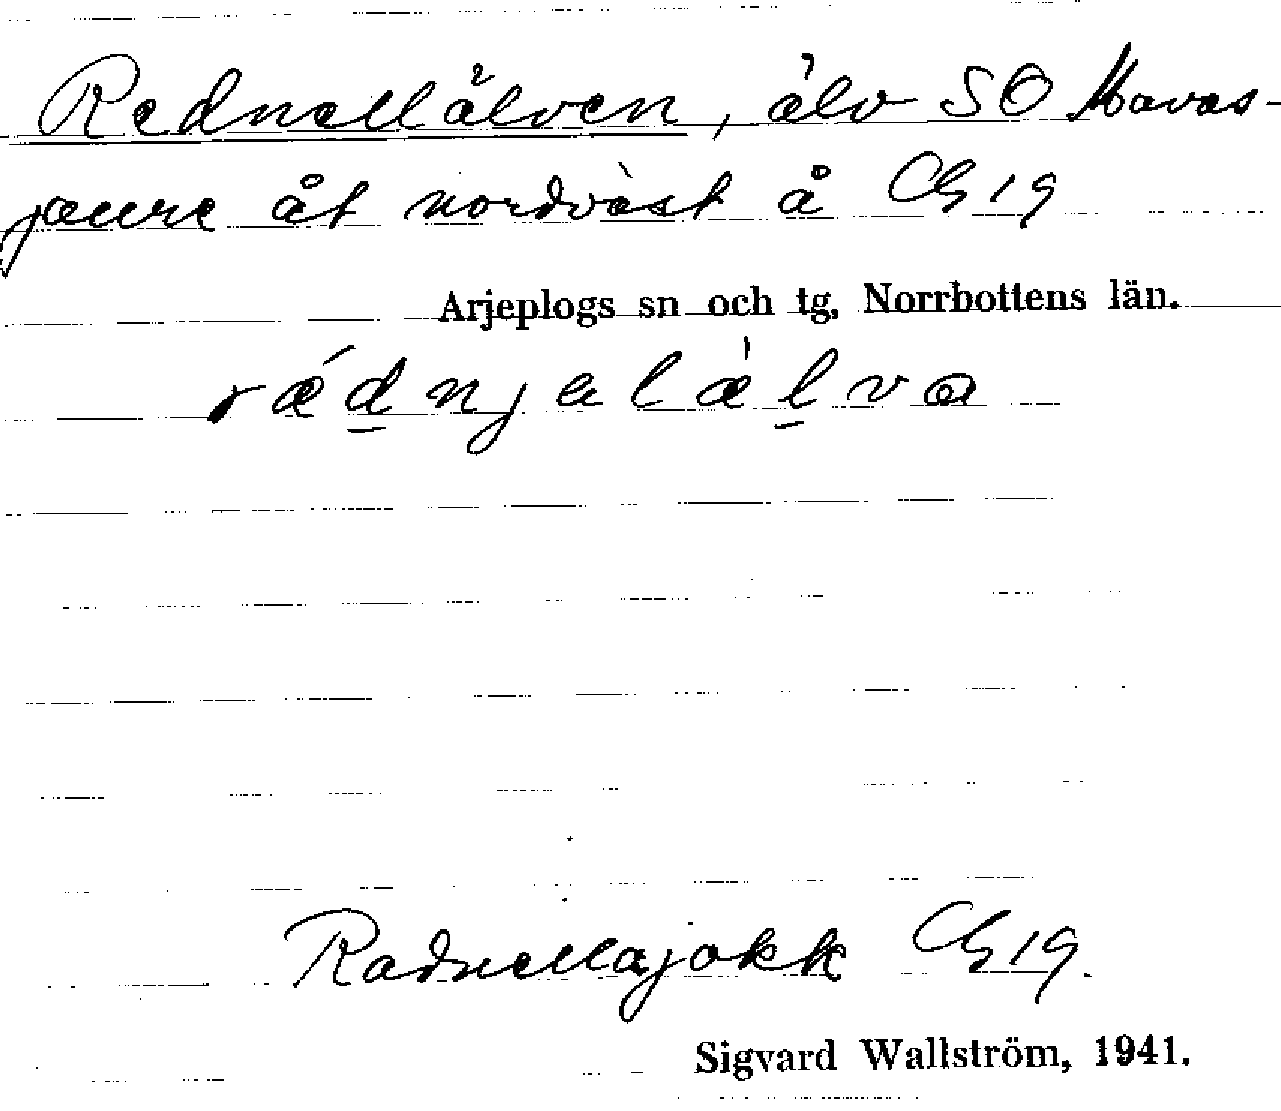 Rednellälven, älv SO Mavas-
jaure åt nordväst å Cb 19
Arjeplogs sn och tg, Norrbottens län.
rǽdnjelälva
Radnellajokk Cb 19.
Sigvard Wallström, 1941.